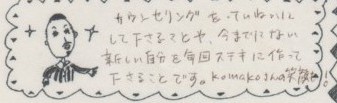 カウンセリングをていねいに
して下さることや、今までにない
新しい自分を毎回ステキに作って
下さることです。komakoさんの笑顔も!